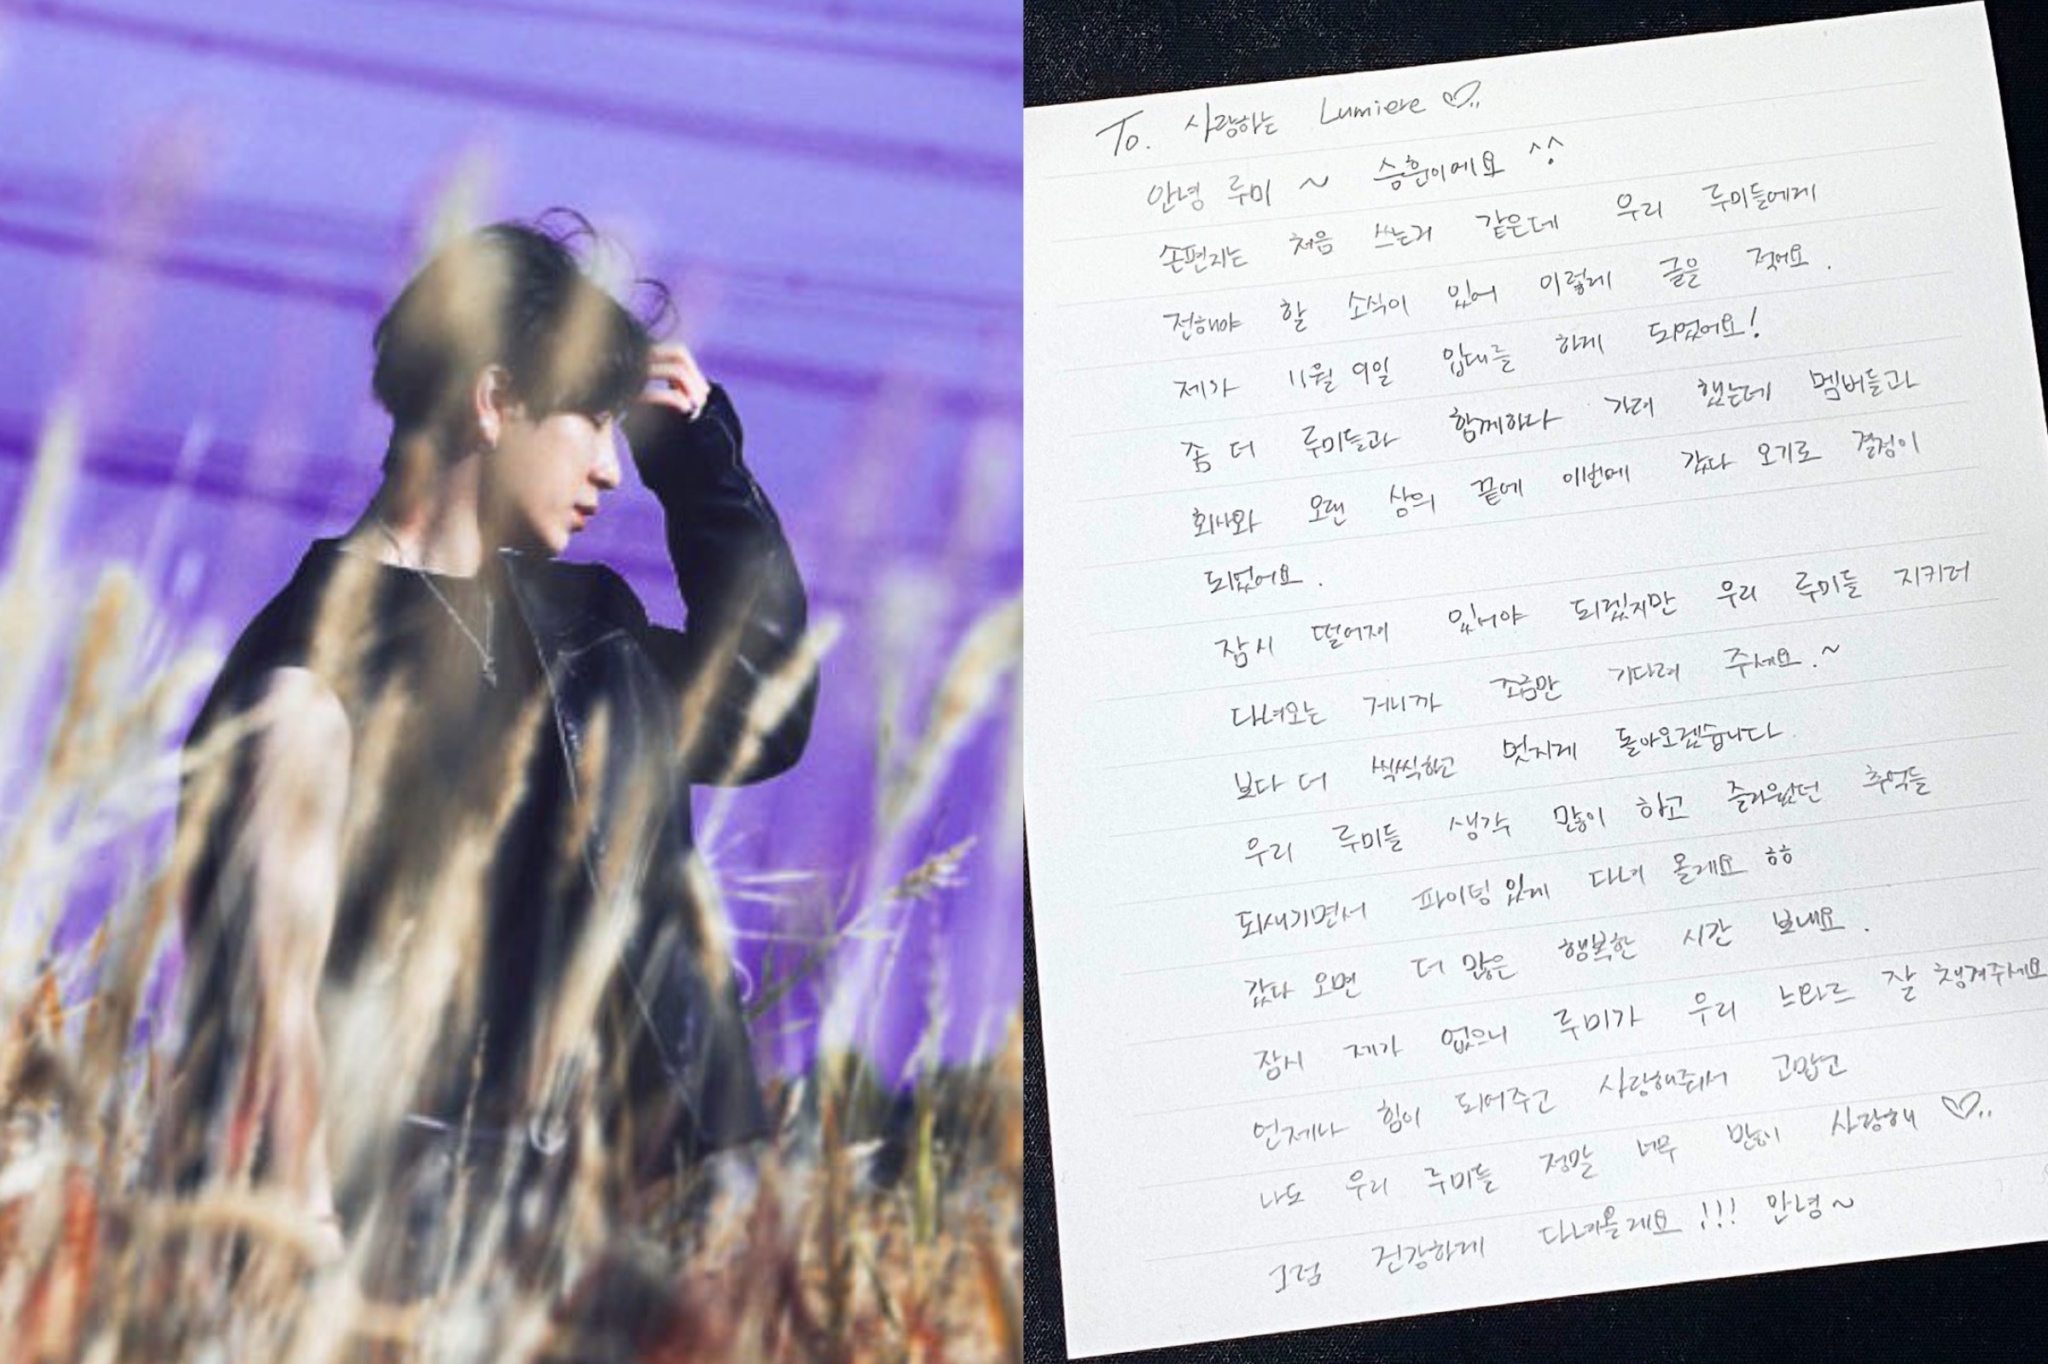 To. 사랑하는 Lumiere ♡..
안녕 루미 ~ 승훈이에요 ^^
손편지는 처음 쓰는거 같은데 우리 루미들에게
전해야 할 소식이 있어 이렇게 글을 적어요.
제가 11월 9일 입대를 하게 되었어요!
좀 더 루미들과 함께하다 가려 했는데 멤버들과
회사와 오랜 상의 끝에 이번에 갔다 오기로 결정이
되었어요.
잠시 떨어져 있어야 되겠지만 우리 루미들 지키러
다녀오는 거니까 조금만 기다려 주세요.~
보다 더 씩씩하고 멋지게 돌아오겠습니다.
우리 루미들 생각 많이 하고 즐거웠던 추억들
되새기면서 파이팅있게 다녀 올게요 ㅎㅎ
갔다 오면 더 많은 행복한 시간 보내요.
잠시 제가 없으니 루미가 우리 느와르 잘 챙겨주세요
언제나 힘이 되어주고 사랑해줘서 고맙고
나도 우리 루미들 정말 너무 많이 사랑해 ♡..
그럼 건강하게 다녀올게요!!! 안녕~